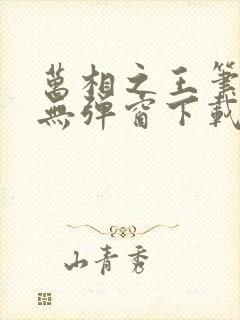 萬相之王筆
無彈窗下載
山青秀